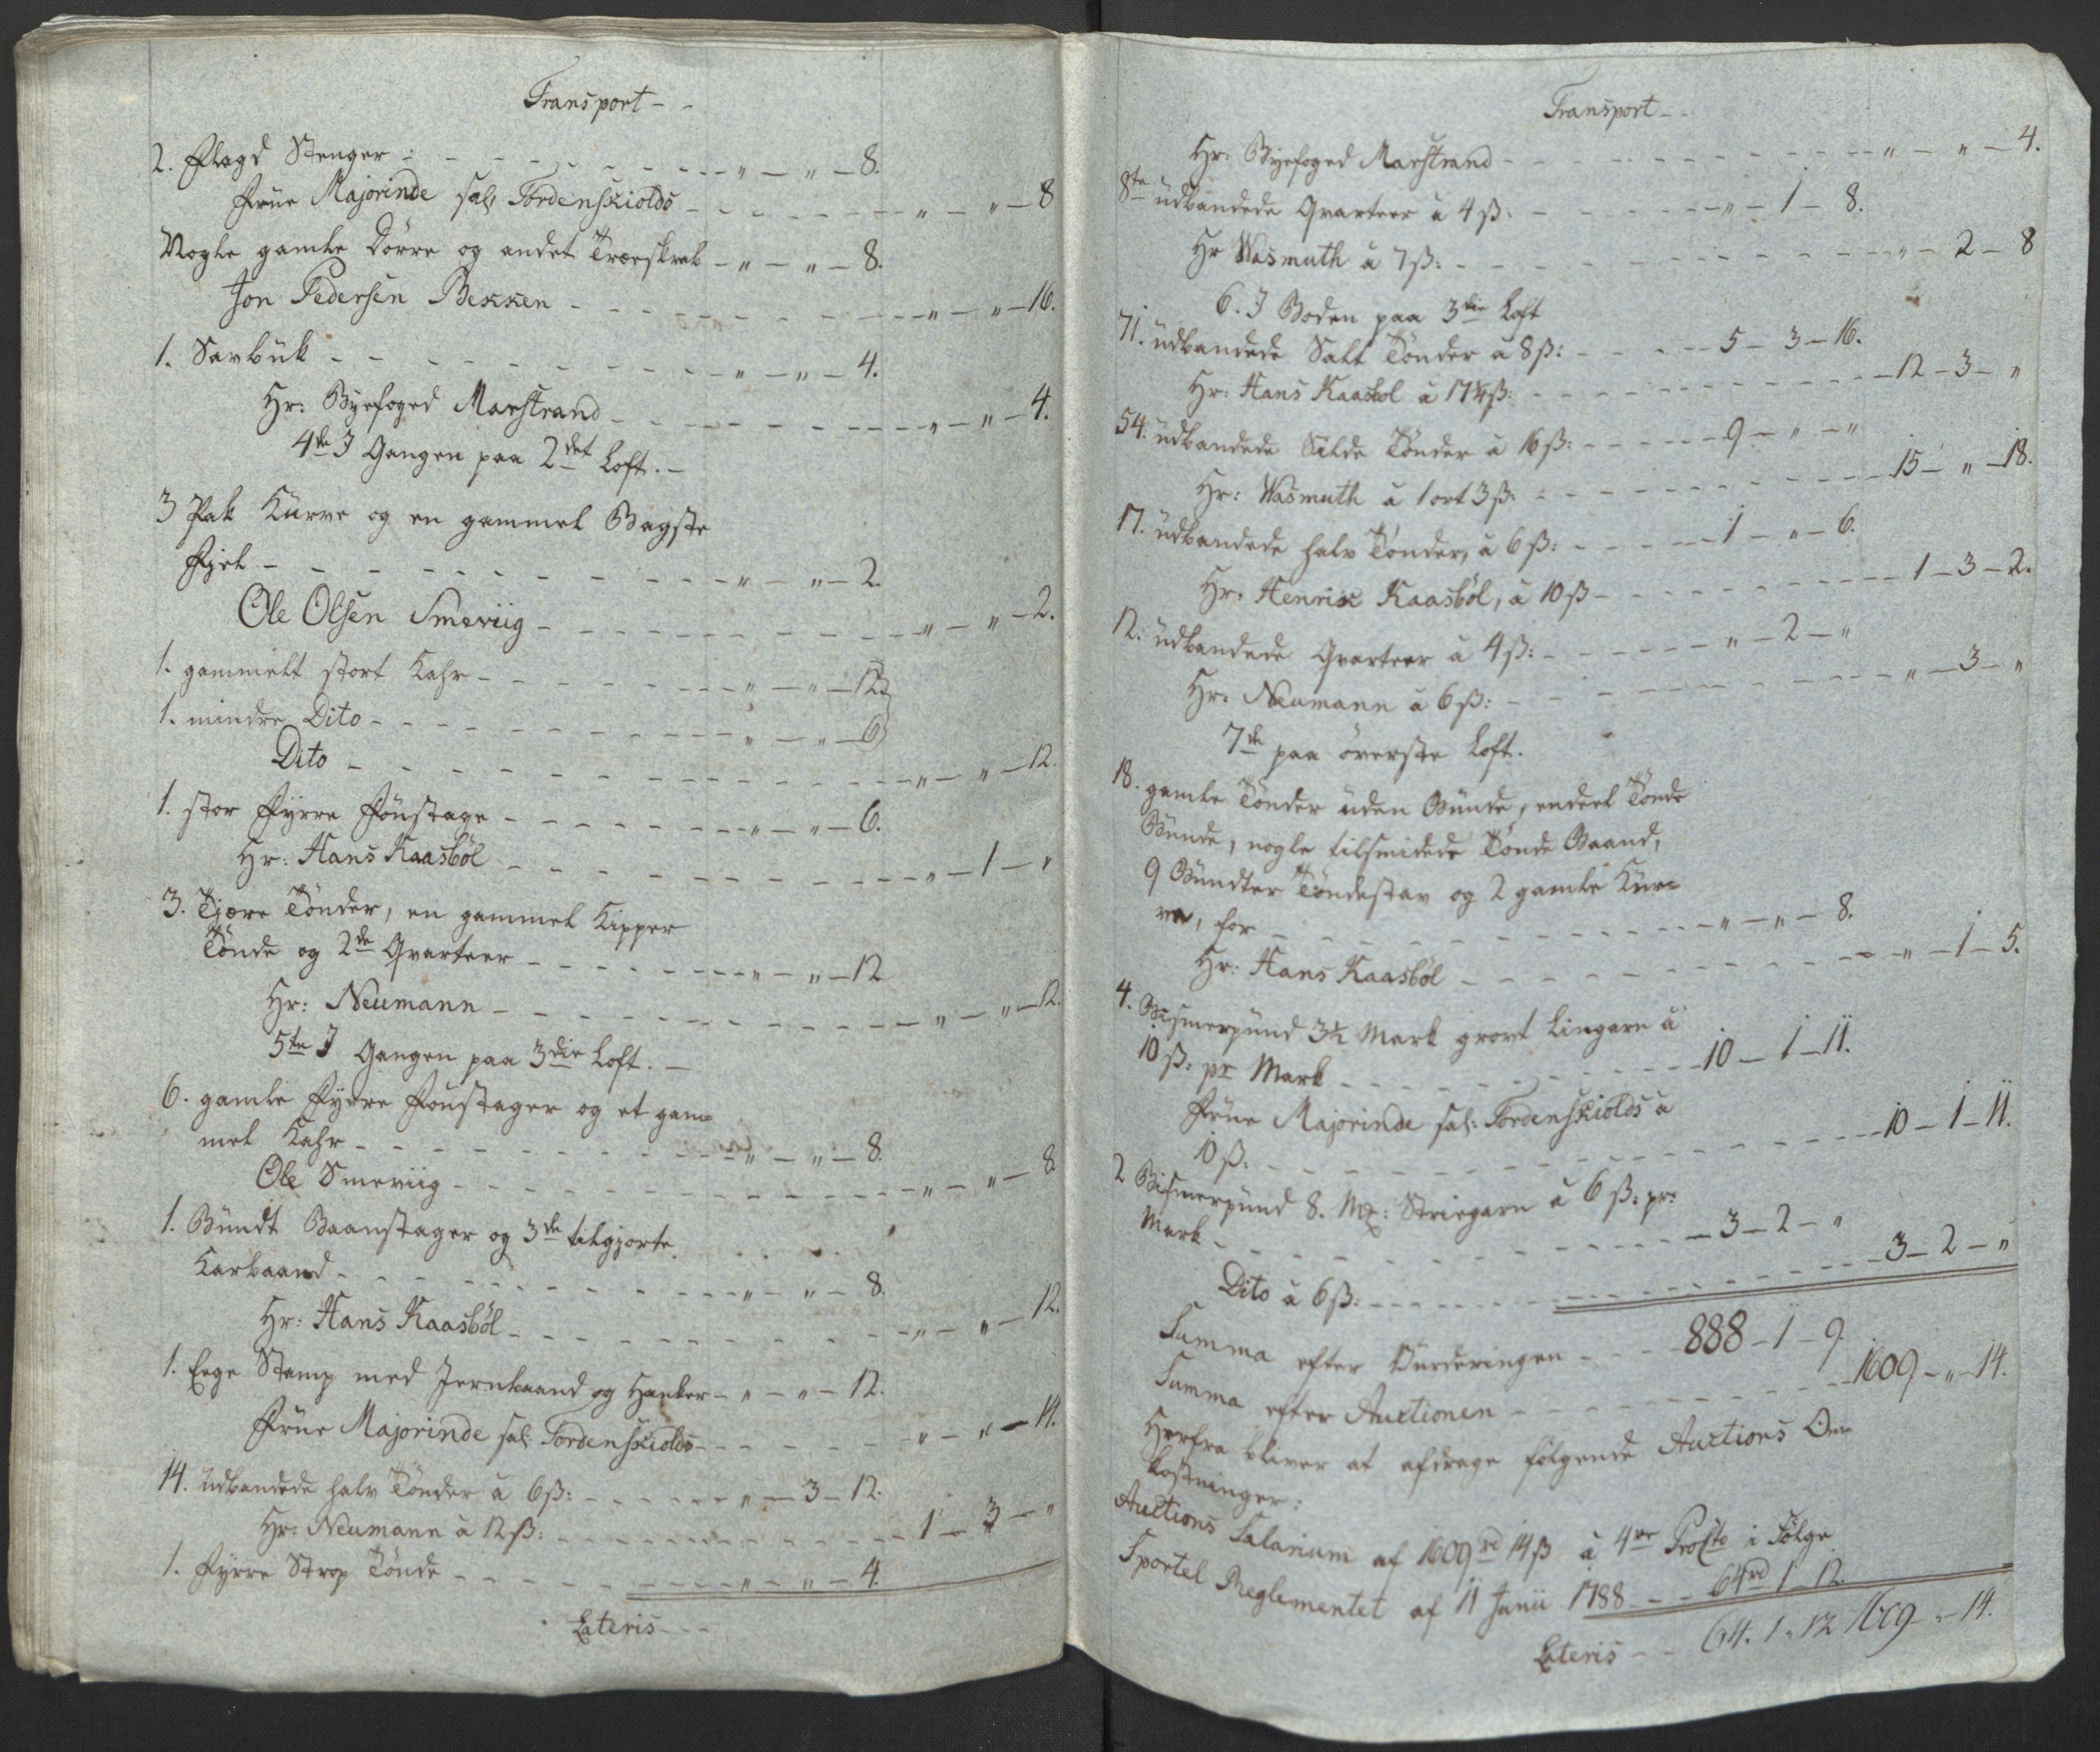 Transport - -
2. Flagd Stenger - - - " - " - 8.
Frue Majorinde sal: Tordenskiolds - - - " - " - 8
Nogle gamle Dörre og andet Træskrab - " - " - 8.
Jon Pedersen Bekken - - - " - " - 16.
1. Savbuk - - - " - " - 4.
Hr: Byefoged Marstrand - - - " - " - 4.
4de I Gangen paa 2det Loft. -
3 Pak Kurve og en gammel Bagste
Fjel - - - " - " - 2.
Ole Olsen Smeviig - - - " - " - 2.
1. gammelt stort Kahr - - - " - " - 12
1. mindre Dito - - - " - " - 6
Dito - - - " - " - 12.
1. stor Fyrre Foustage - - - " - " - 6.
Hr: Hans Kaasböl - - - " - 1 - "
3. Tjære Tönder, en gammel Kipper
Tönde og 2de Qvarteer - - - " - " - 12
Hr: Neumann - - - " - " - 12.
5te I Gangen paa 3die Loft. -
6. gamle Fyrre Foustager og et gam=
mel Kahr - - - " - " - 8.
Ole Smeviig - - - " - " - 8.
1. Bundt Baanstager og 3de tilgjorte
Karbaand - - - " - " - 8.
Hr: Hans Kaasböl - - - " - " - 12.
1. Eege Stamp med Jernbaand og Hanker - " - " - 12.
Frue Majorinde sal: Tordenskiolds - - - " - " - 14.
14. udbandede halv Tönder a 6 ß: - - - " - 3 - 12.
Hr: Neumann a 12 ß: - - - 1 - 3 - "
1. Fyrre Strop Tönde - - - " - " - 4.
Lateris - - -
Transport - -
Hr: Byefoged Marstrand - - - " - " - 4.
8te udbandede Qvarteer a 4 ß: - - - " - 1 - 8.
Hr Wasmuth a 7 ß: - - - " - 2 - 8
6. I Boden paa 3die Loft
71. udbandede Salt Tönder a 8 ß: - - - 5 - 3 - 16.
Hr: Hans Kaasböl a 17¼ ß: - - - 12 - 3 - "
54. udbandede Silde Tönder a 16 ß: - - - 9 - " - "
Hr: Wasmuth a 1 ort 3 ß: - - - 15 - " - 18.
17. udbandede halv Tönder, a 6 ß: - - - 1 - " - 6.
Hr: Henrik Kaasböl, a 10 ß - - - 1 - 3 - 2.
12. udbandede Qvarteer a 4 ß: - - - " - 2 - "
Hr: Neumann a 6 ß: - - - " - 3 - "
7de paa överste Loft.
18. gamle Tönder uden Bunde, endeel Tönde
Bunde, nogle tilsmidede Tönde Baand,
9 Bundter Töndestav og 2 gamle Kur=
ve, for - - - " - " - 8.
Hr: Hans Kaasböl - - - " - 1 - 5.
4. Bismerpund 3½ Mark grovt Lingarn a
10 ß: pr Mark - - - 10 - 1 - 11.
Frue Majorinde sal: Tordenskiolds a
10 ß. - - - 10 - 1 - 11.
2 Bismerpund 8. Mk: Striegarn a 6 ß: pr:
Mark - - - 3 - 2 - "
Dito a 6 ß: - - - 3 - 2 - "
Summa efter Vurderingen - - - 888 - 1 - 9
Summa efter Auctionen - - - 1609 - " - 14.
Herfra bliver at afdrage fölgende Auctions Om=
kostninger:
Auctions Salarium af 1609 rd 14 ß a 4re Procto i Fölge
Sportel Reglementet af 11 Junii 1788 - - 64 rd 1 - 12.
Lateris - - 64. 1. 12 1609 - " - 14.